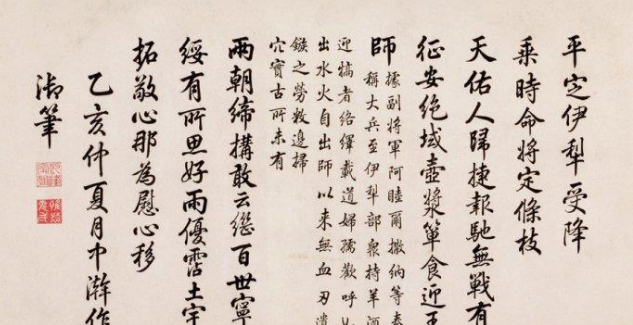 平定伊犁受降
乘時命將定條枝
天佑人歸捷報馳無戰有
征安絕域壺漿簞食迎王
師
據副將軍阿睦爾撒納等奏
稱大兵至伊犁部衆持羊酒
迎犒者絡繹載道婦孺歡呼
出水火自出師以来無血刃遺
鏃之勞敉邊掃
穴實古所未有
兩朝締搆敢云繼百世寧
綏有所思好雨優霑土宇
拓敬心那為慰心移
乙亥仲夏月中澣作
御筆